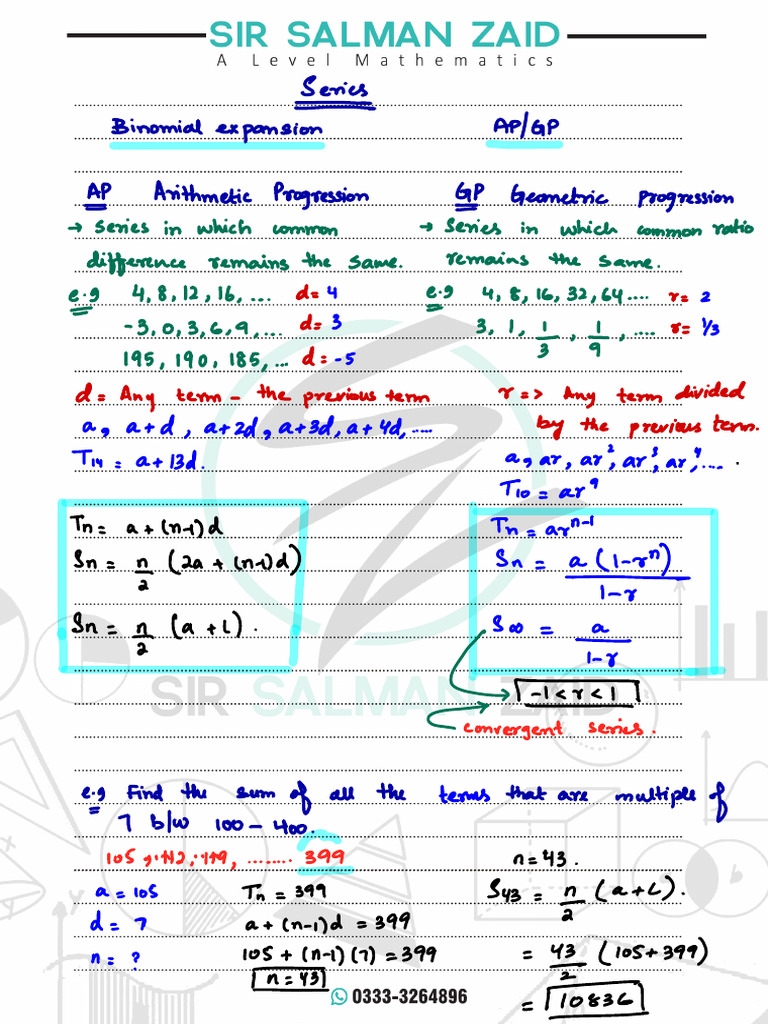 SIR SALMAN ZAID
A Level Mathematics
Series
Binomial expansion AP/GP
AP Arithmetic Progression
→ Series in which common
difference remains the same.
e.g 4, 8, 12, 16, ... d = 4
-3, 0, 3, 6, 9, ... d = 3
195, 190, 185, ... d = -5
d = Any term - the previous term
a, a+d, a+2d, a+3d, a+4d, .....
T₁₄ = a + 13d.
Tn = a + (n-1)d
Sn = n/2 (2a + (n-1)d)
Sn = n/2 (a + L).
GP Geometric progression
→ Series in which common ratio
remains the same.
e.g 4, 8, 16, 32, 64 ..... r = 2
3, 1, 1/3, 1/9, ..... r = 1/3
r => Any term divided
by the previous term.
a, ar, ar², ar³, ar⁴, ....
T₁₀ = ar⁹
Tn = arⁿ⁻¹
Sn = a(1-rⁿ)/1-r
S∞ = a/1-r
-1 < r < 1
convergent series.
SIR SALMAN ZAID
e.g Find the sum of all the terms that are multiple of
7 b/w 100 - 400.
105, 112, 119, ........ 399
a = 105
d = 7
n = ?
Tn = 399
a + (n-1)d = 399
105 + (n-1)(7) = 399
n = 43
n = 43.
S₄₃ = n/2 (a+L).
= 43/2 (105 + 399)
= 10836
0333-3264896